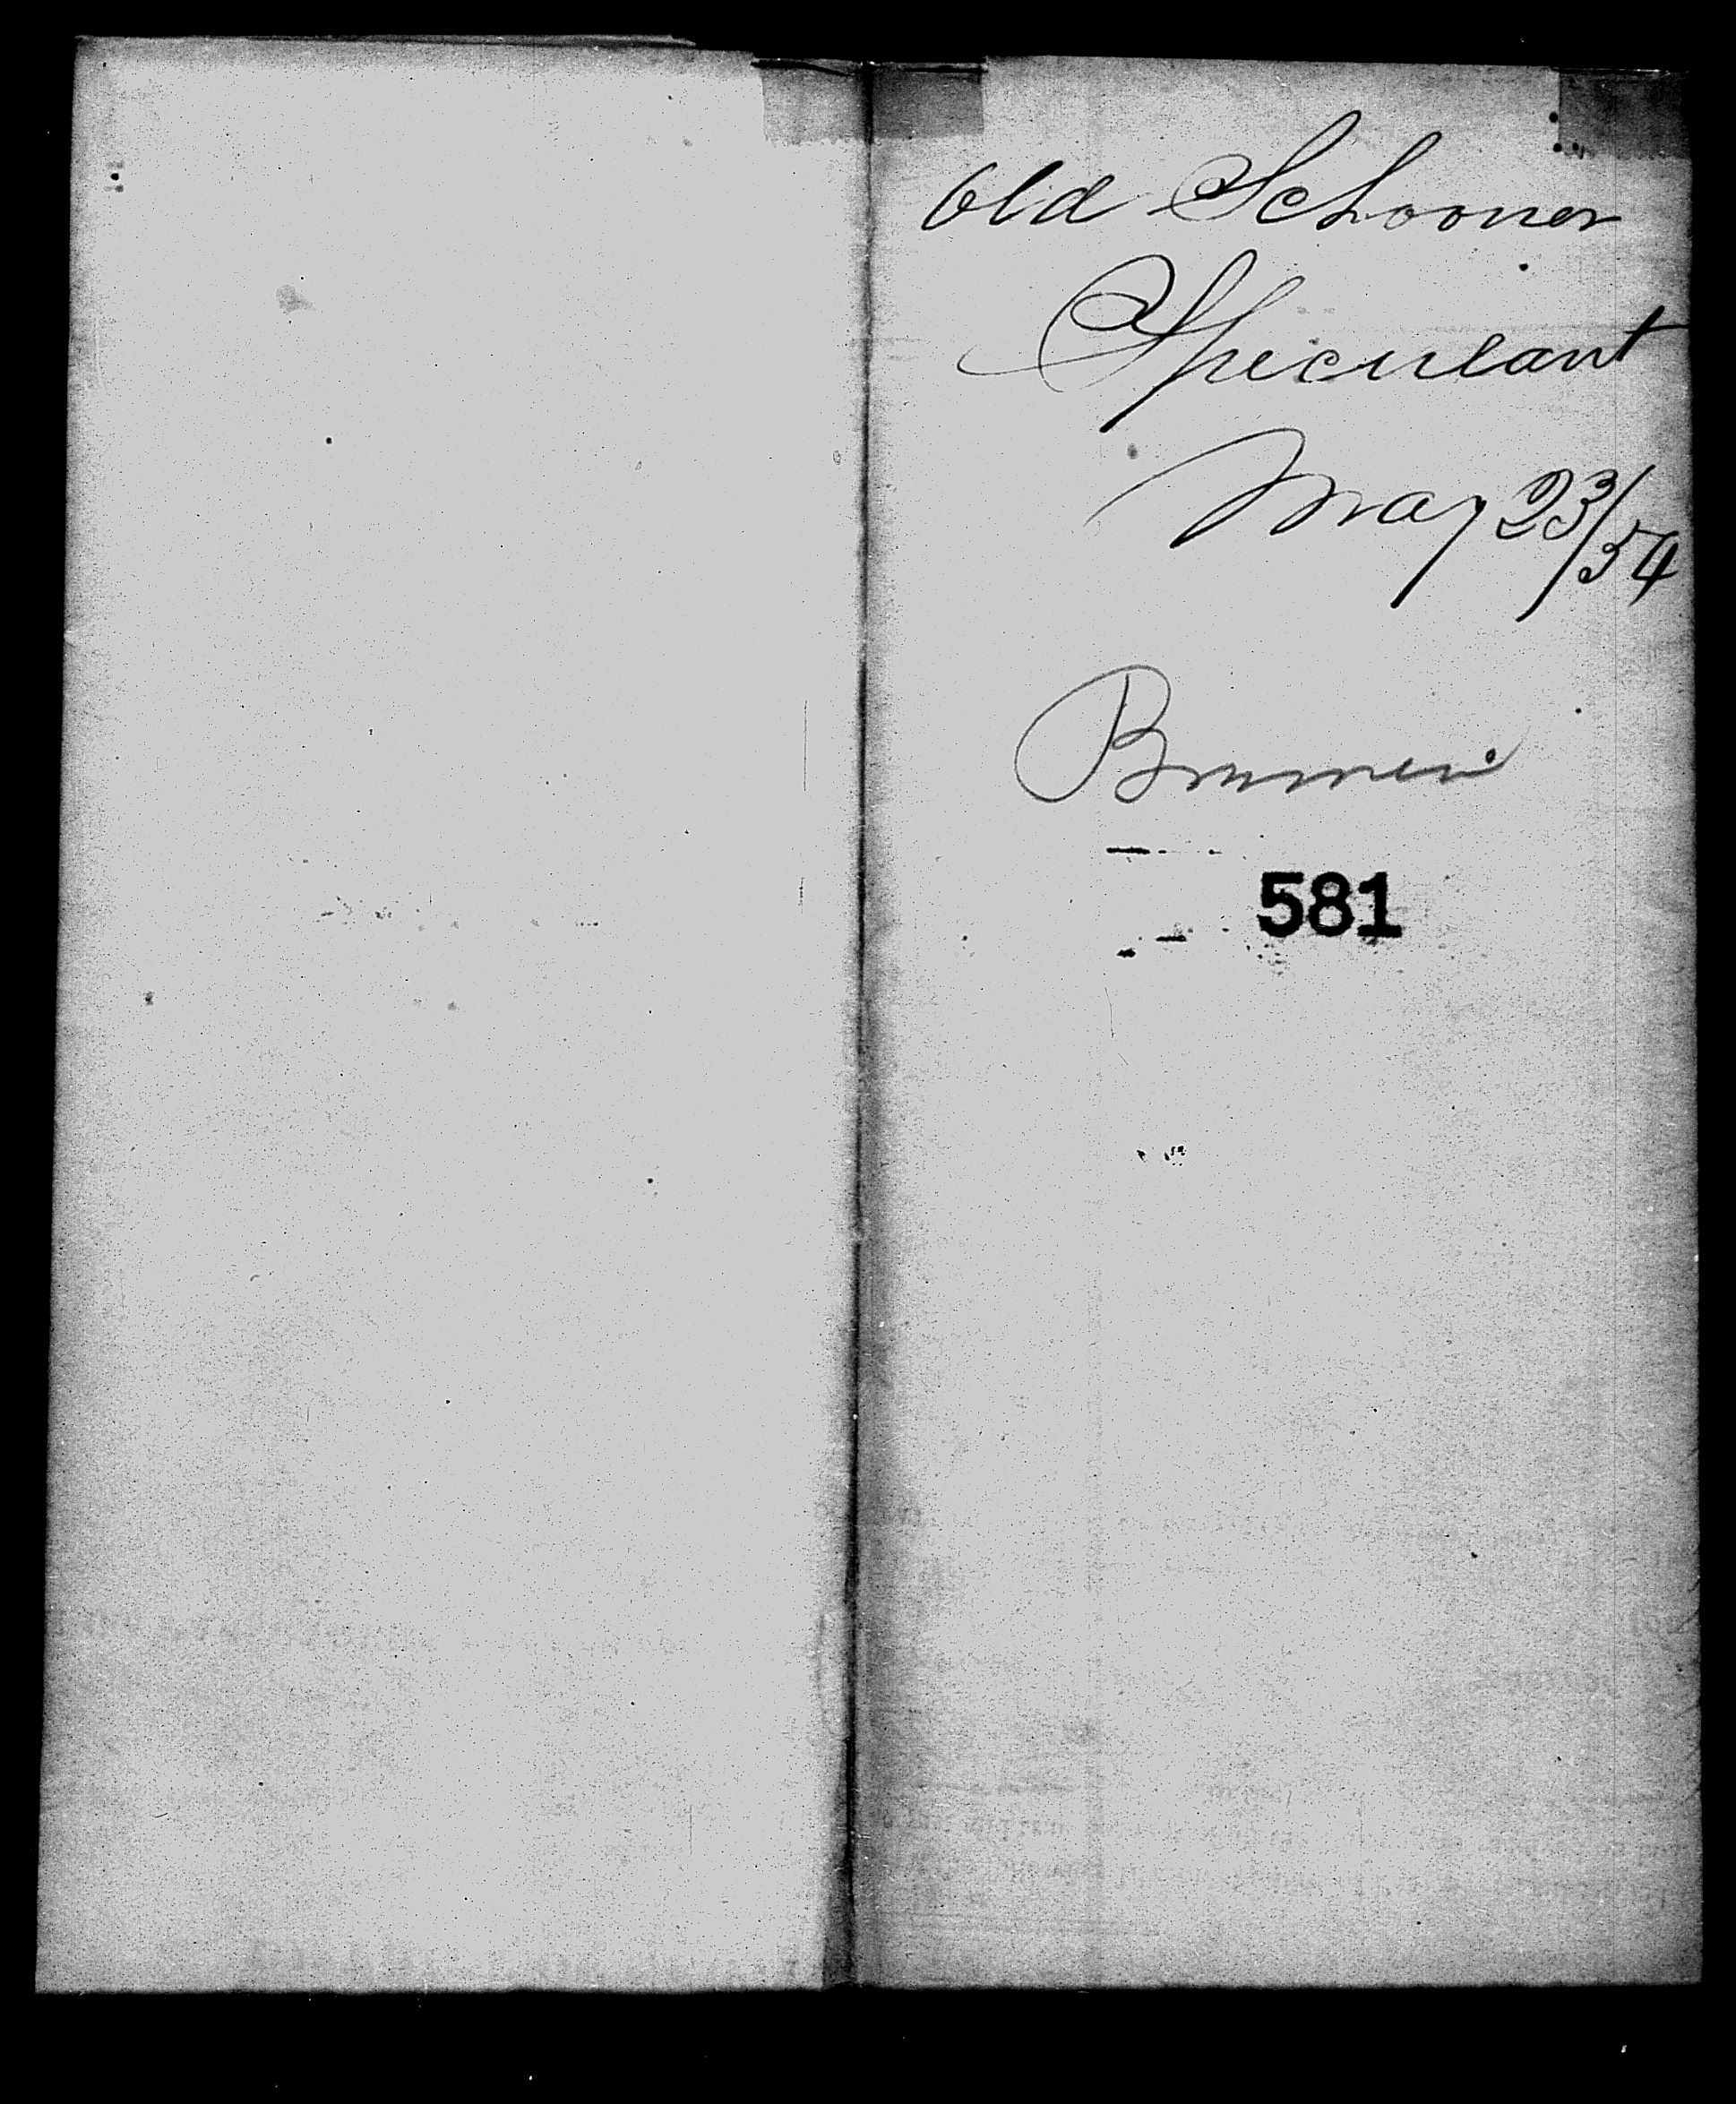 Old Schooner
Speculant
May 23/54
581